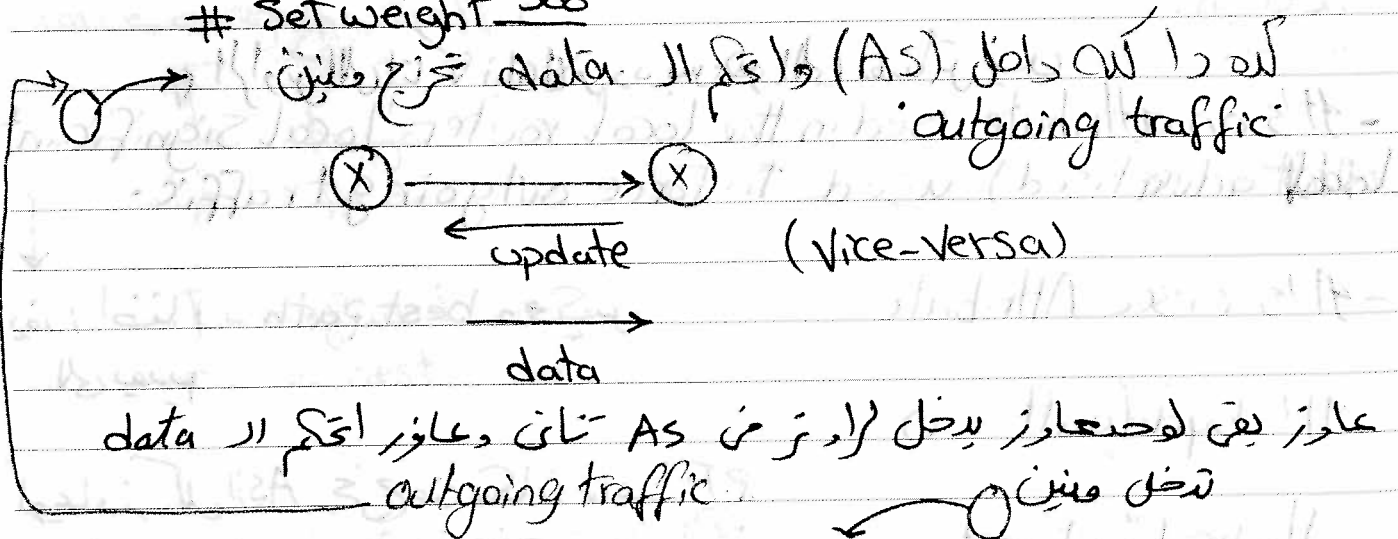 # Set weight 500
كده دا كله داخل (AS) واتحكم الـ data تخرج منين
outgoing traffic
X X
update (Vice-Versa)
data
عاوز بقى لو حد عاوز يدخل لراوتر فى AS تانى وعاوز اتحكم الـ data
تدخل منين outgoing traffic